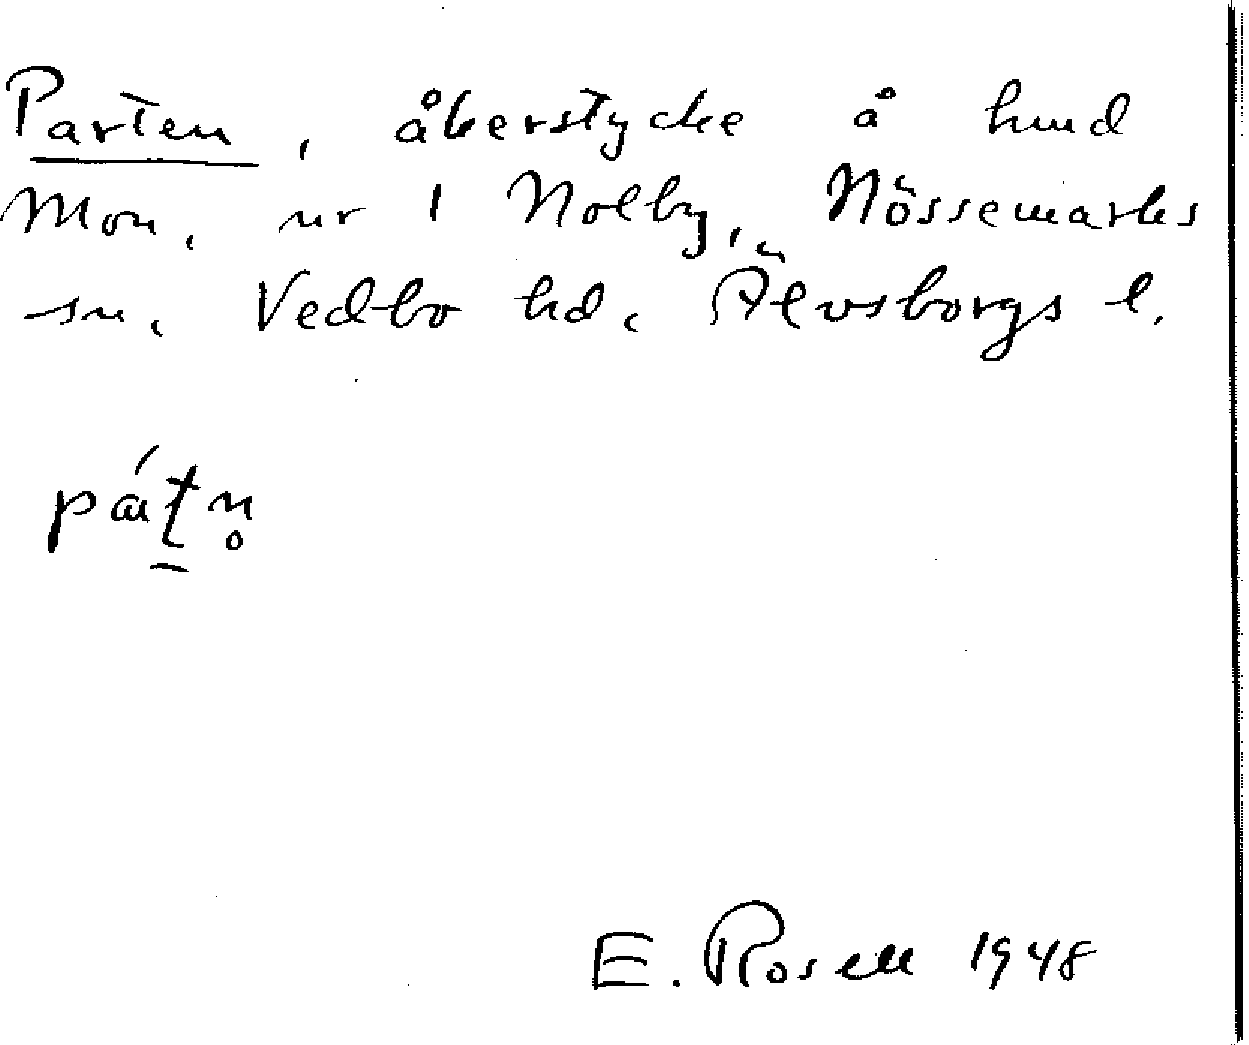 Parten, åkerstycke å hmd
Mon, nr 1 Nolby, Nössemarks
sn, Vedbo hd, Älvsborgs l.
pát̠n̥
E. Rosell 1948